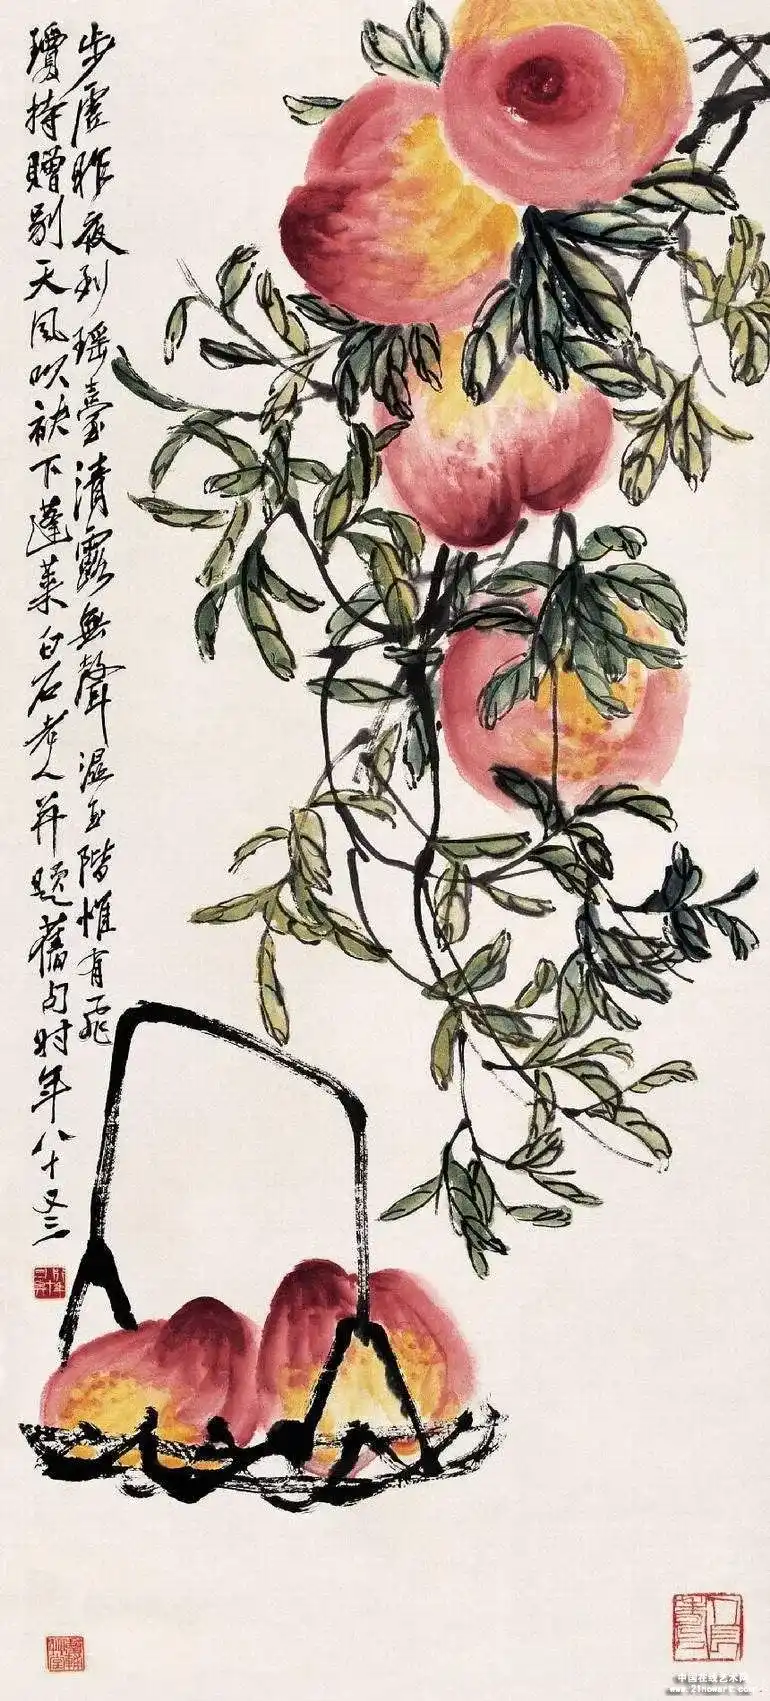 步虛昨夜到瑤臺清露無聲濕玉階惟有飛
瓊持贈别天風吹袂下蓬萊白石老人并題舊句時年八十又三
中国在线艺术网
www.21nowart.com